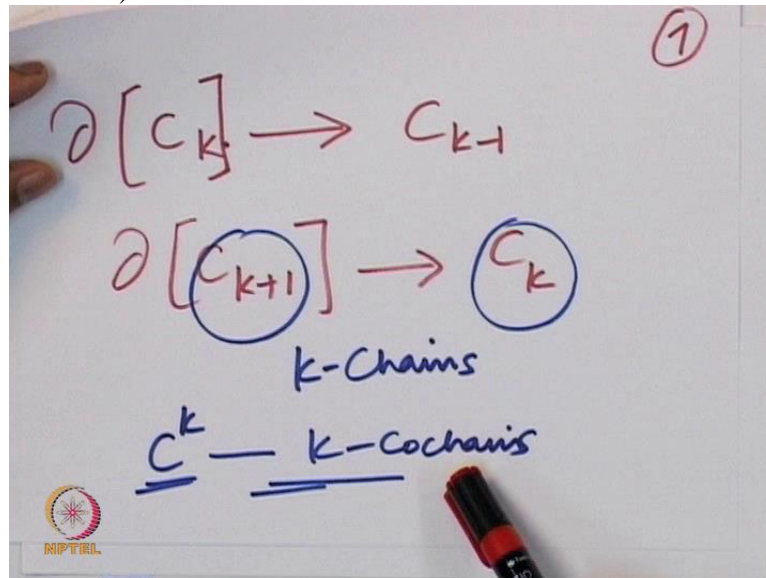 ①
∂[C_k] ⟶ C_{k-1}
∂[C_{k+1}] ⟶ C_k
k-Chains
C^k — k-Cochains
NPTEL